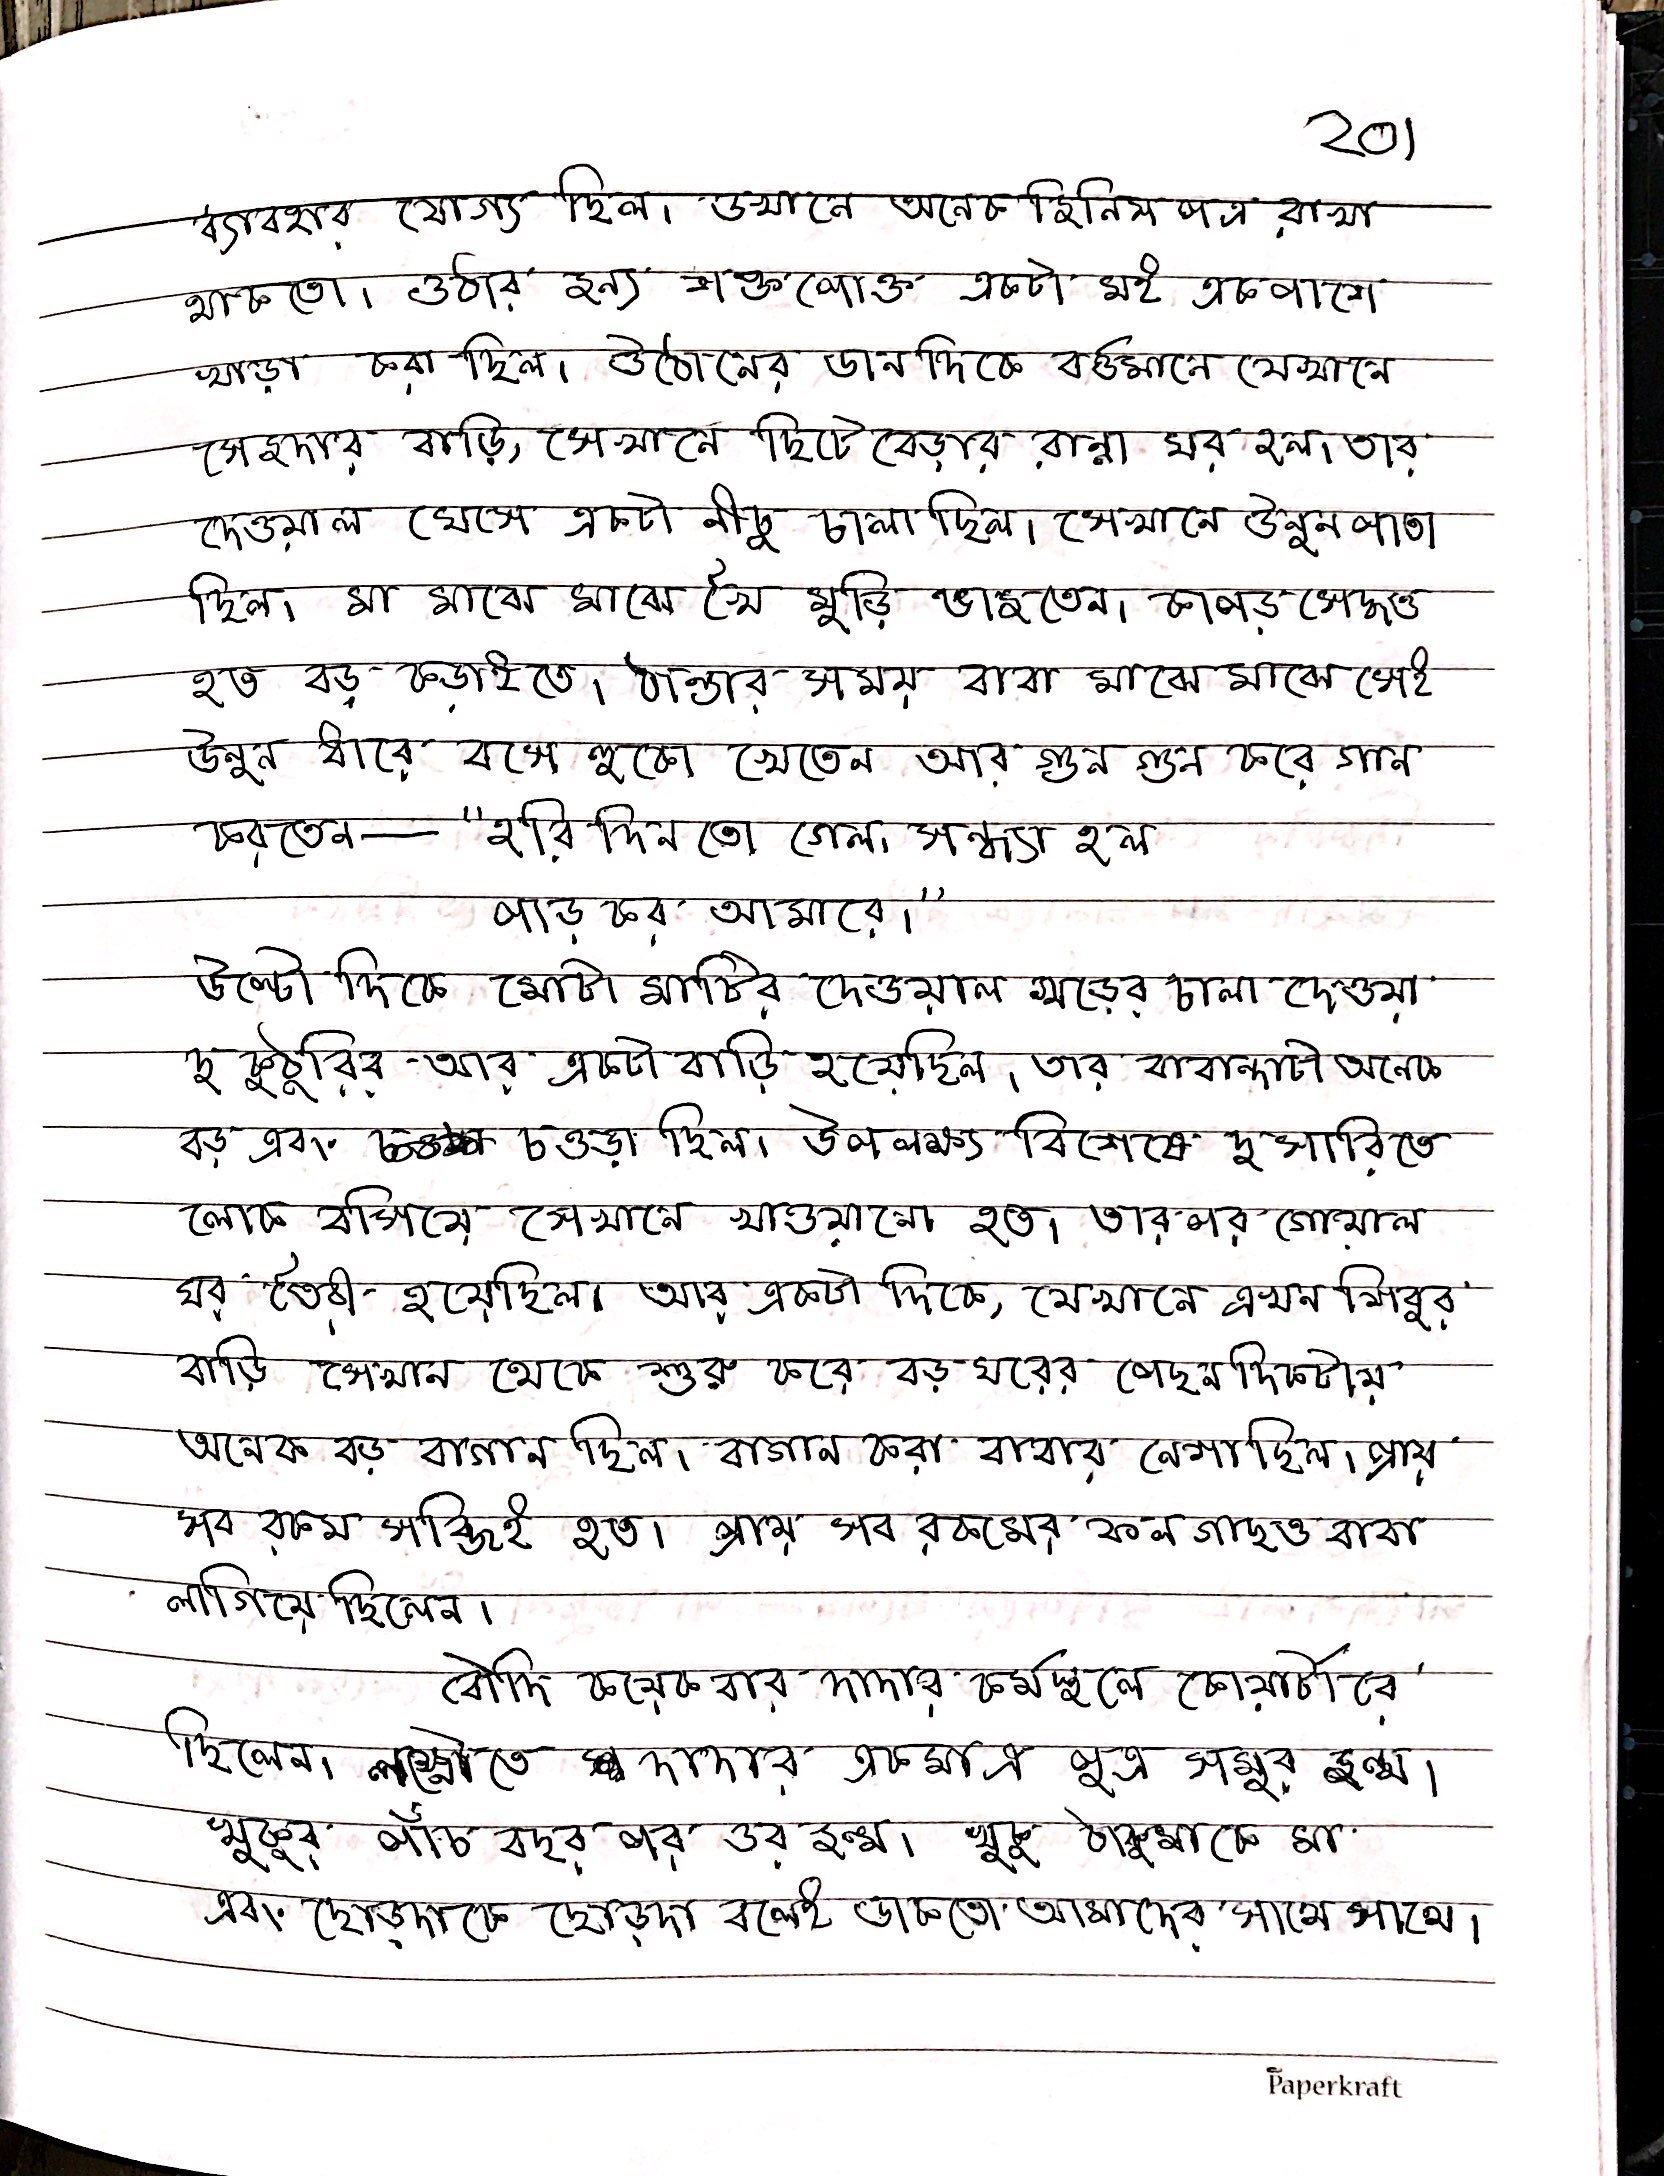 201
ব্যাবহার যোগ্য ছিল। ওখানে অনেক জিনিস পত্র রাখা
থাকতো। ওঠার জন্য শক্তপোক্ত একটা মই একপাশে
খাড়া করা ছিল। উঠোনের ডানদিকে বর্ত্তমানে যেখানে
সেজদার বাড়ি, সেখানে ছিটেবেড়ার রান্না ঘর হল। তার
দেওয়াল ঘেসে একটা নীচু চালা ছিল। সেখানে উনুন পাতা
ছিল। মা মাঝে মাঝে খৈ মুড়ি ভাজতেন। কাপড় সেদ্ধও
হত বড় কড়াইতে। ঠান্ডার সময় বাবা মাঝে মাঝে সেই
উনুন ধারে বসে হুকো খেতেন আর গুন গুন করে গান
করতেন— "হরি দিন তো গেল। সন্ধ্যা হল
পাড় কর আমারে।"
উল্টো দিকে মোটা মাটির দেওয়াল খড়ের চালা দেওয়া
দু কুঠুরির আর একটা বাড়ি হয়েছিল। তার বারান্দাটা অনেক
বড় এবং চওড়া ছিল। উপলক্ষ্য বিশেষে দু সারিতে
লোক বসিয়ে সেখানে খাওয়ানো হত। তারপর গোয়াল
ঘর তৈরী হয়েছিল। আর একটা দিকে, যেখানে এখন শিবুর
বাড়ি সেখান থেকে শুরু করে বড় ঘরের পেছন দিকটায়
অনেক বড় বাগান ছিল। বাগান করা বাবার নেশা ছিল। প্রায়
সব রকম সব্জিই হত। প্রায় সব রকমের ফল গাছও বাবা
লাগিয়েছিলেন।
বৌদি কয়েকবার দাদার কর্মস্থলে কোয়ার্টারে
ছিলেন। লক্ষ্ণৌতে দাদার একমাত্র পুত্র সমুর জন্ম।
খুকুর পাঁচ বছর পর ওর জন্ম। খুকু ঠাকুমাকে মা
এবং ছোড়দাকে ছোড়দা বলেই ডাকতো আমাদের সাথে সাথে।
Paperkraft